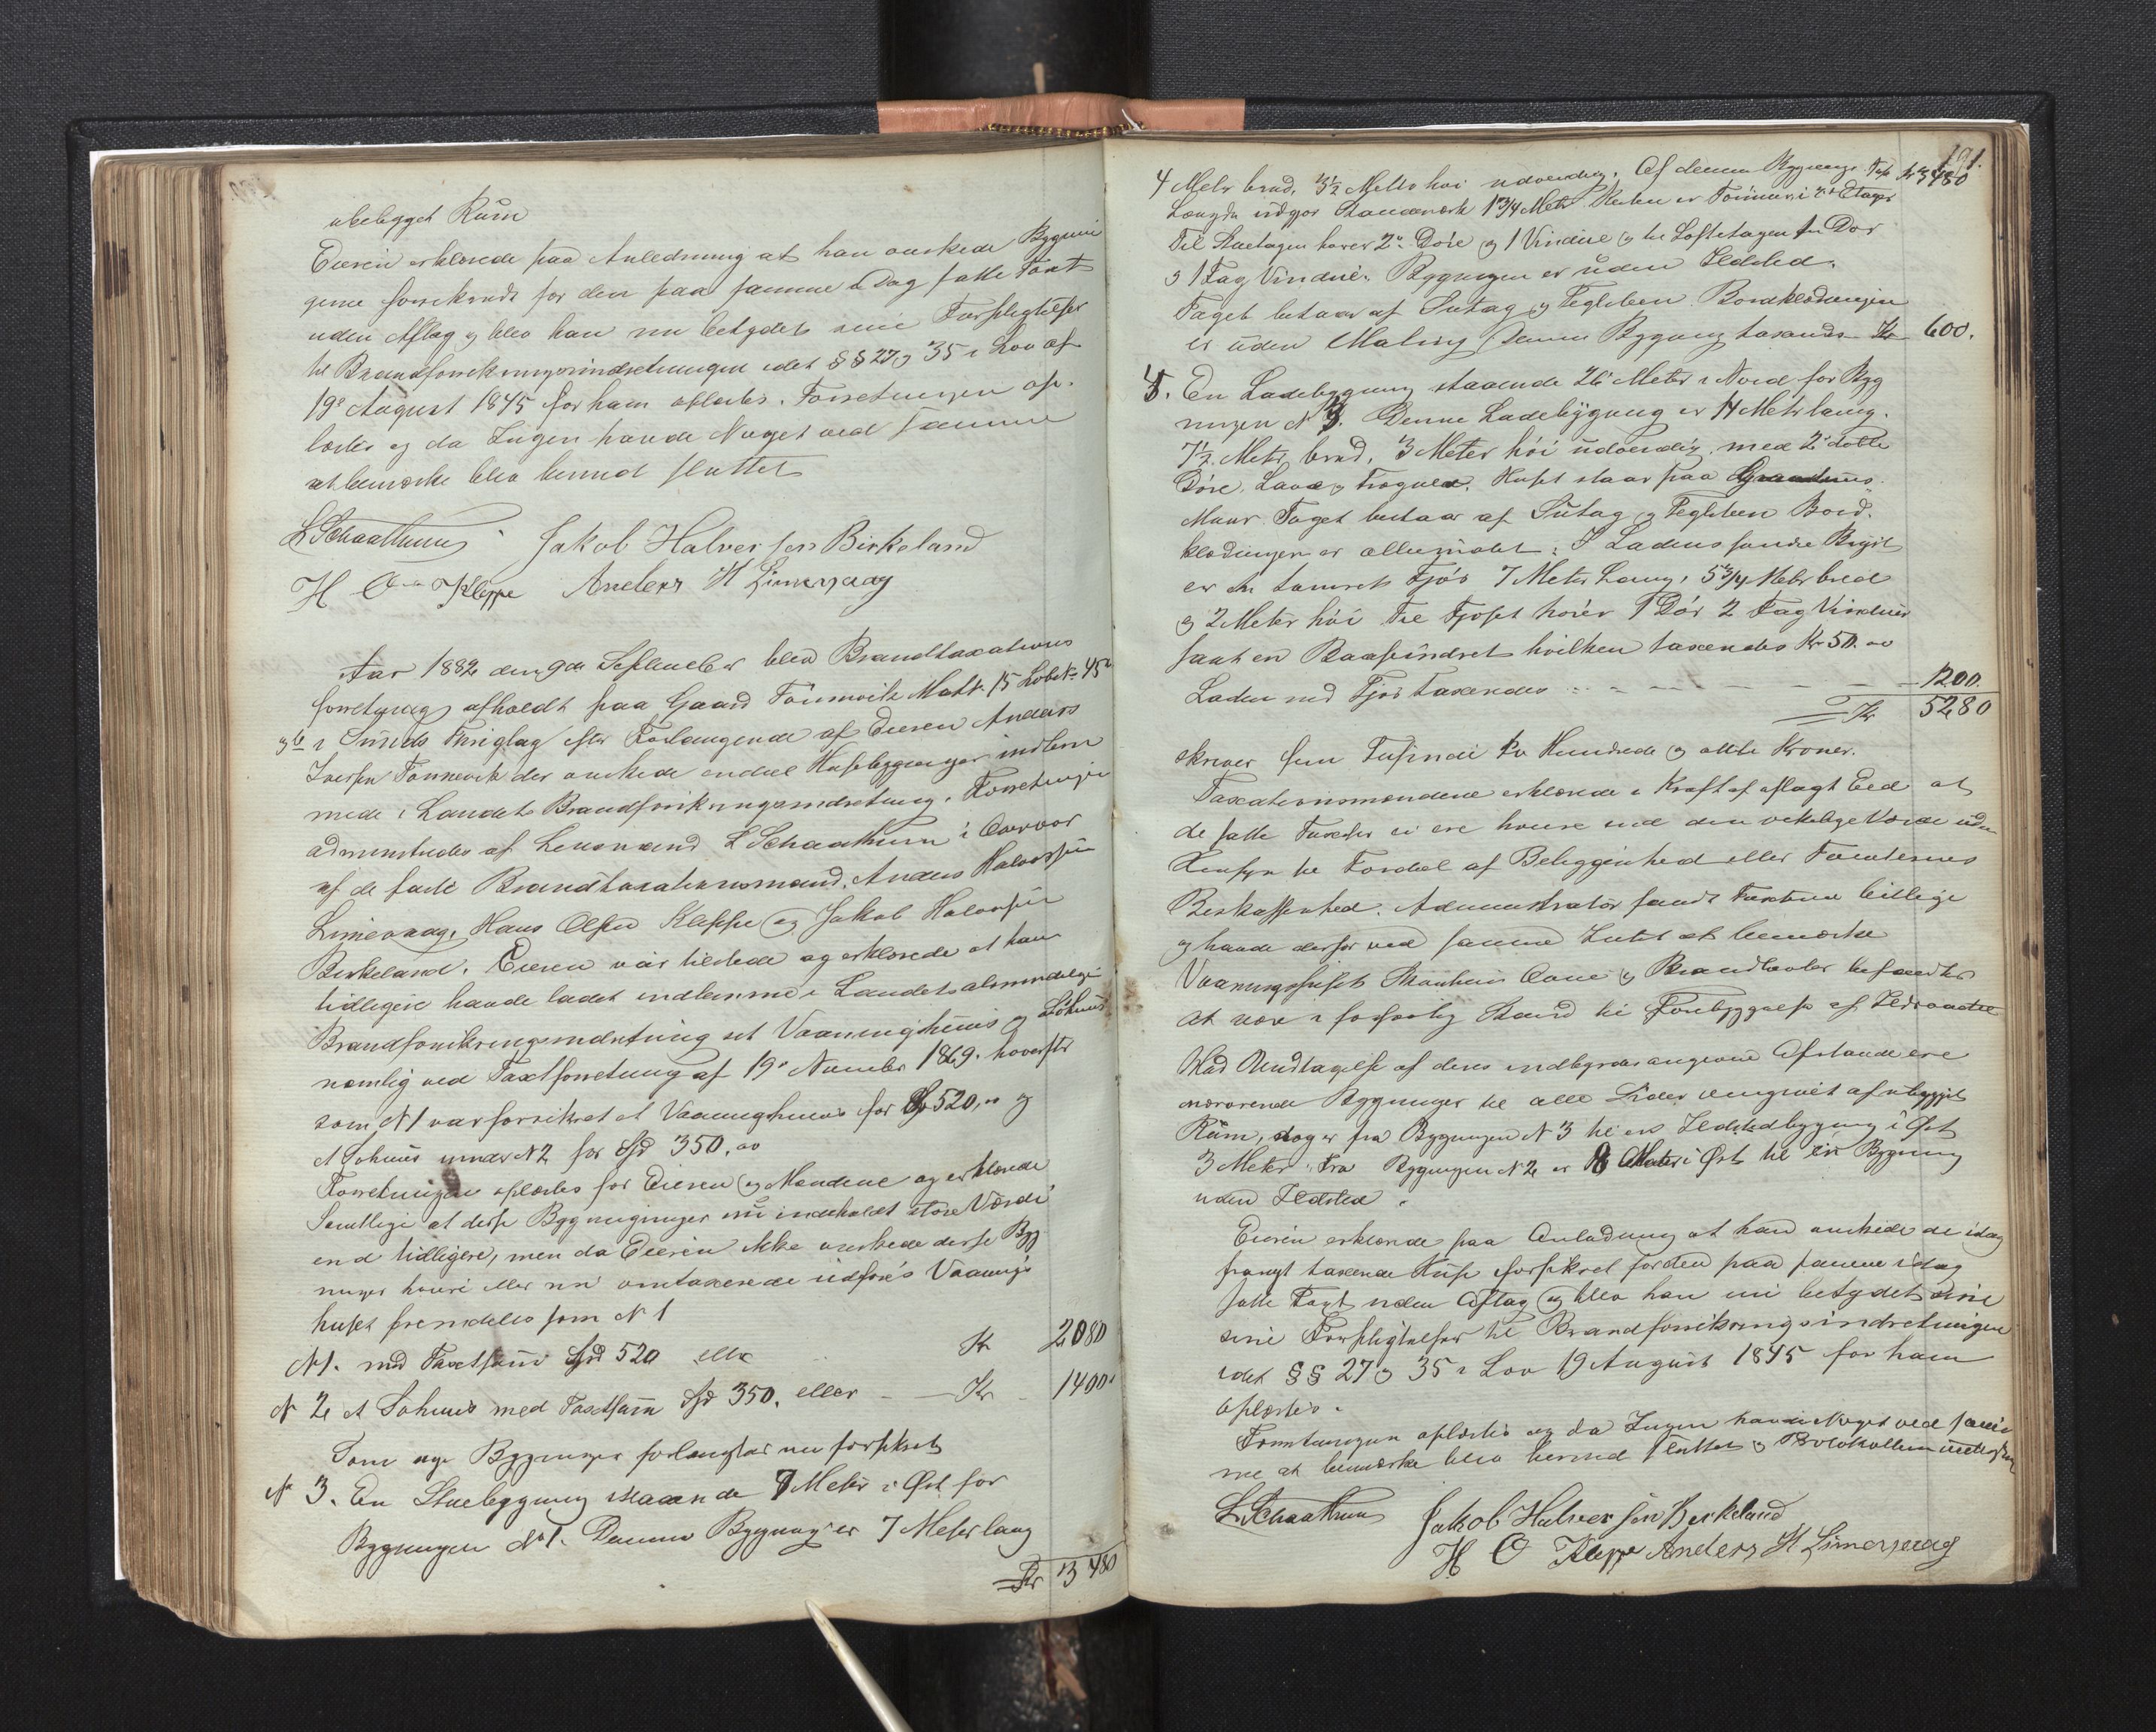 ubebygget Rum
Eieren erklærede paa Anledning at han ønskede Bygnin
gerne forsikrede for den paa samme i Dag satte Taxt
uden Aflag og blev han nu betydet sine Forpligtelser
til Brandforsikringsindretningen idet §§ 27 og 35 i Lov af
19de August 1845 for ham oplæstes. Forretningen op-
læstes og da Ingen havde Noget ved samme
at bemærke blev hermed sluttet
L Schaathun Jakob Halversen Birkeland
H O Kleppe Anders H Limesvaag
Aar 1882 den 9de September blev Brandtaxations
forretning afholdt paa Gaard Tønnevik Matr. 15 Løbe No 45a
og b i Thinglag efter Forlangende af Eieren Anders
Iversen Tønnevik der ønskede endeel Husebygninger indlem
mede i Landets Brandforsikringsindretning. Forretningen
administredes af Lensmand L Schaathun i Overvær
af de faste Brandtaxationsmænd. Anders Halvorsen
Limesvaag, Hans Olsen Kleppe og Jakob Halvorsen
Birkeland. Eieren var tilstede og erklærede at han
tidligere havde ladet indlemme i Landets almindelige
Brandforsikringsindretning et Vaaningshuus og Søhuus
nemlig ved Taxtforretning af 19de November 1869. hvorefter
som N 1 var forsikret et Vaaningshuus for Spd 520,00 og
et Søhuus under N 2 for Spd 350,00
Forretningen oplæstes for Eieren og Mændene og erklærede
Samtlige at disse Bygninger nu indeholdt større Værdi
end tidligere, men da Eieren ikke ønskede disse Byg
ninger omtaxerede udføres Vaanings
huset fremdeles som N 1
N 1. med Taxtsum Spd 520 eller Kr 2080
N 2 et Søhuus med Taxtsum Spd 350. eller Kr 1400.
Som nye Bygninger forlangtes nu forsikret
No 3. En Stuebygning staaende 7 Meter i Øst for
Bygningen No 1. Denne Bygning er 7 Meter lang
Kr 3480
191.
4 Meter bred, 3½ Meter høi udvendig. Af denne Bygnings Kr 3480
Længde udgjør Standværk 1¾ Meter. Resten er Tømmer i 2de Etager
Til Stuetagen hører 2de Døre og 1 Vindue og til Loftetagen en Dør
og 1 Fag Vindue. Bygningen er uden Ildsted.
Taget bestaar af Sutag og Teglsten Bordklædningen
er uden Maling. Denne Bygning taxeredes Kr 600.
4. En Ladebygning staaende 26 Meter i Nord for Byg
ningen N 3. Denne Ladebygning er 11 Meter lang.
7½ Meter bred, 3 Meter høi udvendig, med 2de dobte
Døre, Lave og Trægulve. Huset staar paa Grundmuus
Muur Taget bestaar af Sutag og Teglsten Bord-
klædningen er ellers malet. I Ladens søndre
er et tømret Fjøs 7 Meter lang, 5¾ Meter bred
og 2 Meter høi Til Fjøset hører 1 Dør 2 Fag Vinduer
samt en Baaseindret hvilken taxeredes Kr 50.00
Laden med Fjøs taxeredes 1200.
Kr 5280
skriver fem Tusinde to Hundrede og otte Kroner.
Taxationsmændene erklærede i Kraft af aflagt Eed at
de satte Taxter ei ere høiere end den virkelige Værdi uden
Hensyn til Fordeel af Beliggenhed eller Tomternes
Beskaffenhed. Administrator fandt Taxterne billige
og havde derfor ved samme Intet at bemærke
Vaaningshuset Skorsten Ovne og Brandtavler befandtes
at være i forsvarlig Stand til Forebyggelse af Ildsvaade
Med Undtagelse af deres indbyrdes angivne Afstande ere
nærværende Bygninger til alle Sider omgivet af ubygget
Rum, dog er fra Bygningen N 3 til en Ildstedbygning i Øst
3 Meter. Fra Bygningen N 2 er 8 Meter i Øst til en Bygning
uden Ildsted.
Eieren erklærede paa Anledning at han ønskede de idag
taxerede Huse forsikret for den paa samme idag
satte Taxt uden Aflag og blev han nu betydet sine
sine Forpligtelser til Brandforsikringsindretningen
idet §§ 27 og 35 i Lov 19 August 1845 for ham
oplæstes.
Forretningen oplæstes og da Ingen havde Noget ved sam
me at bemærke blev hermed sluttet og Protokollen
L. Schaathun Jakob Halversen Birkeland
H O Kleppe Anders H Limesvaag